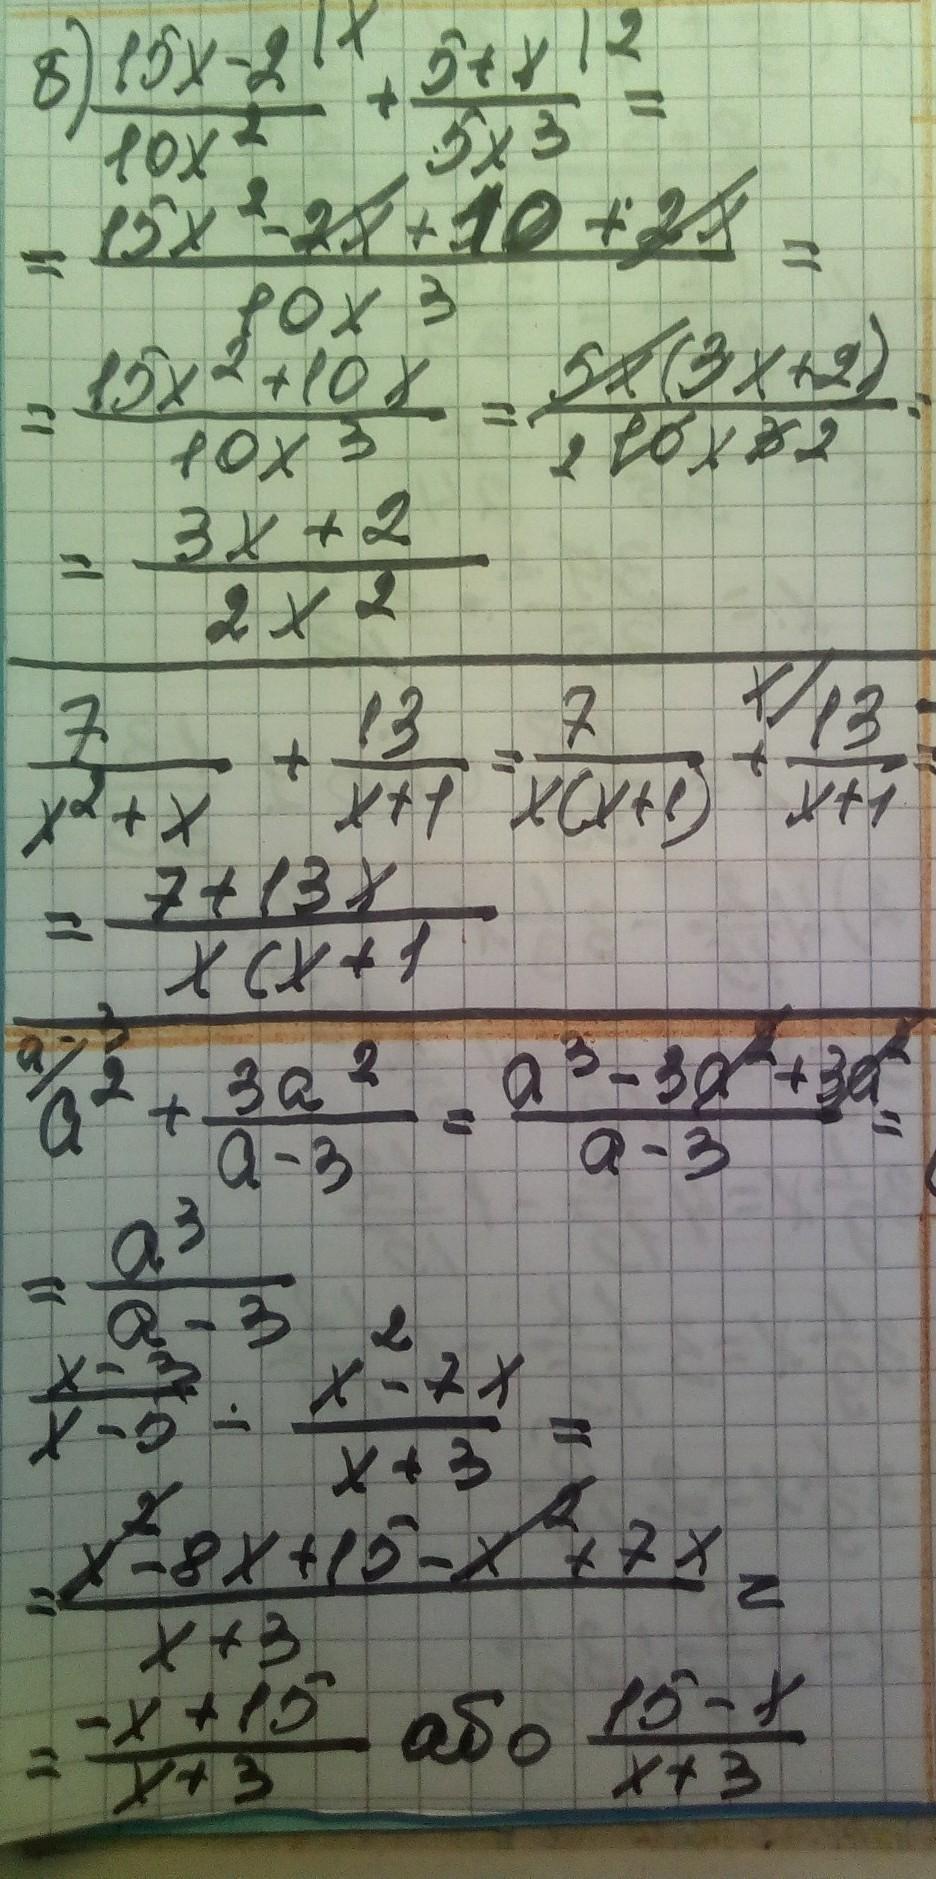 б) (15x-2)/(10x²) |x + (5+x)/(5x3) |2 =
= (15x²-2x+10+2x)/(10x3) =
= (15x²+10x)/(10x3) = (5x(3x+2))/(2 10x3 2) =
= (3x+2)/(2x2)
7/(x²+x) + 13/(x+1) = 7/(x(x+1)) + x/ 13/(x+1) =
= (7+13x)/(x(x+1
a-3/ a² + (3a²)/(a-3) = (a³-3a²+3a²)/(a-3) =
= a³/(a-3)
(x-3)/(x-5) - (x²-7x)/(x+3) =
= (x²-8x+15-x²+7x)/(x+3) =
= (-x+15)/(x+3) або (15-x)/(x+3)